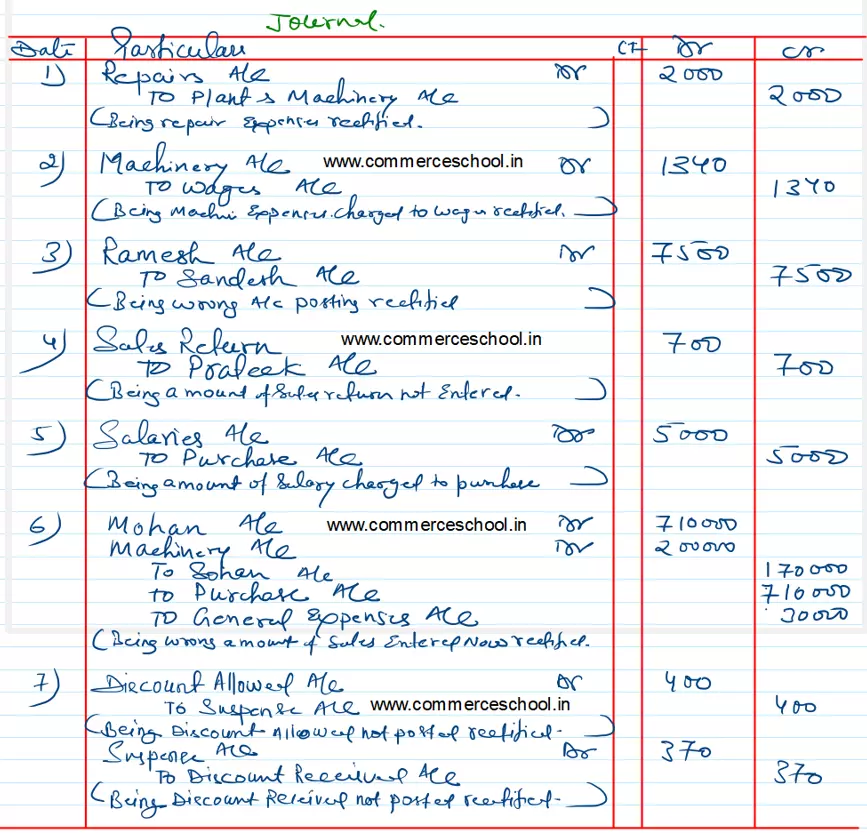 Journal.
Date Particulars CF Dr Cr
1) Repairs A/c Dr 2000
To Plant & Machinery A/c 2000
(Being repair expenses rectified.)
2) Machinery A/c www.commerceschool.in Dr 1340
To Wages A/c 1340
(Being Machi Expenses charged to wages rectified.)
3) Ramesh A/c Dr 7500
To Sandesh A/c 7500
(Being wrong A/c posting rectified)
4) Sales Return www.commerceschool.in 700
To Prateek A/c 700
(Being amount of Sales return not Entered.)
5) Salaries A/c Dr 5000
To Purchase A/c 5000
(Being amount of Salary charged to purchase)
6) Mohan A/c www.commerceschool.in Dr 710000
Machinery A/c Dr 200000
To Sohan A/c 170000
to Purchase A/c 710000
To General Expenses A/c 30000
(Being wrong amount of Sales Entered Now rectified.)
7) Discount Allowed A/c Dr 400
To Suspense A/c www.commerceschool.in 400
(Being Discount Allowed not posted rectified.)
Suspense A/c Dr 370
To Discount Received A/c 370
(Being Discount Received not posted rectified.)